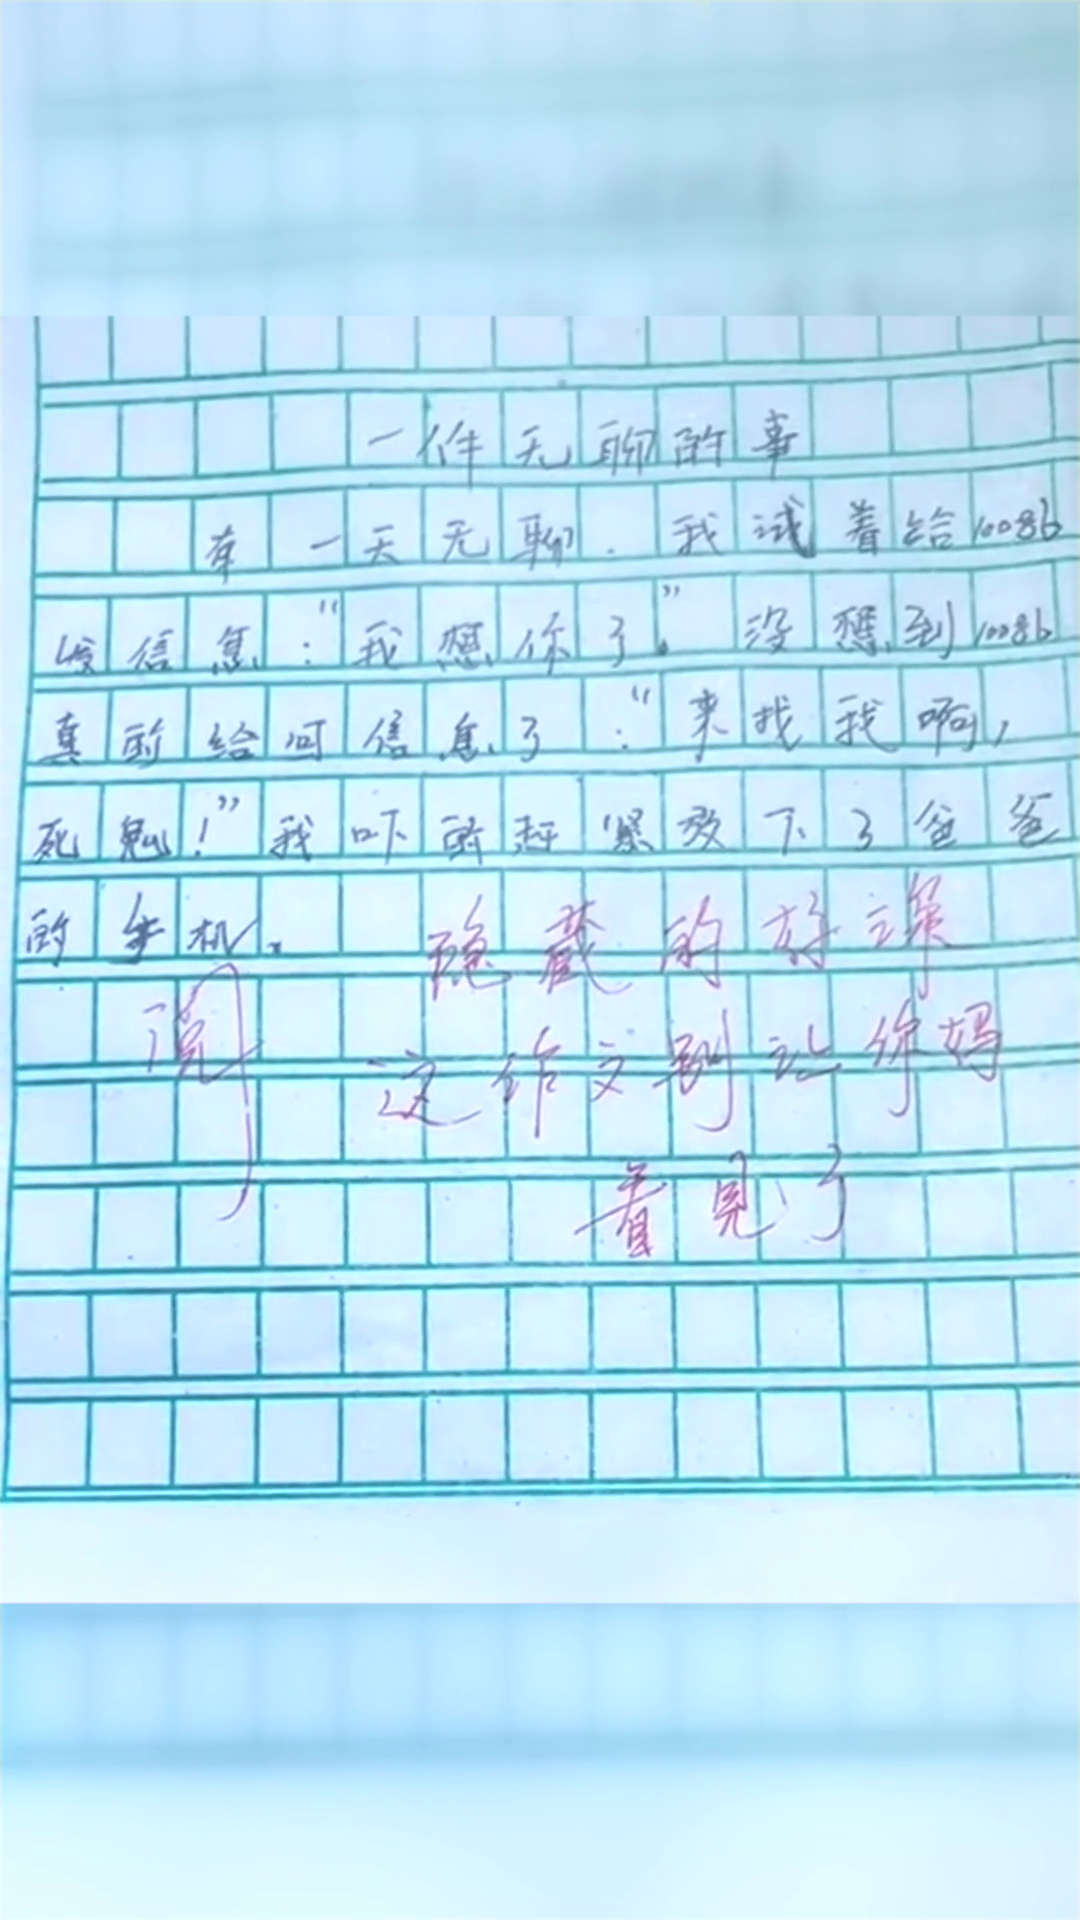 一件无聊的事
有一天无聊.我试着给10086
发信息:“我想你了。”没想到10086
真的给回信息了:“来找我啊,
死鬼!”我吓的赶紧放下了爸爸
的手机.
隐藏的好深
阅
这作文别让你妈
看见了